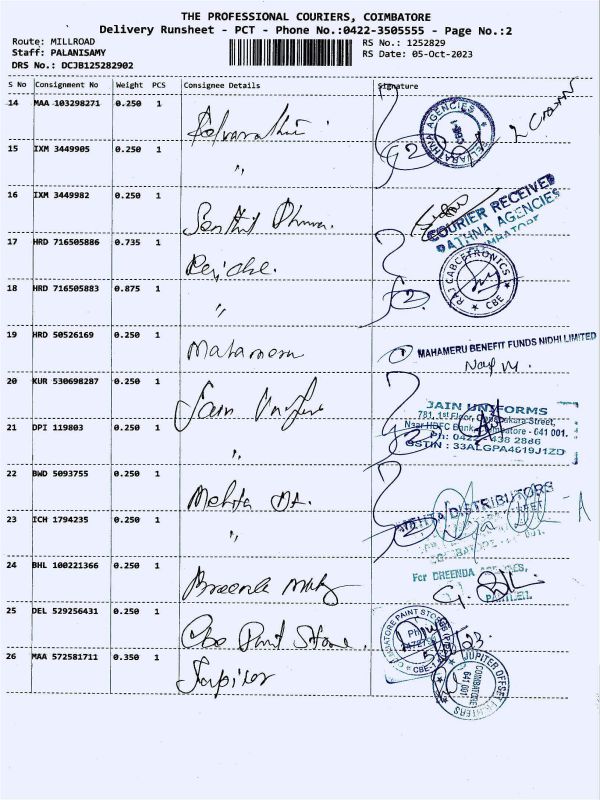 THE PROFESSIONAL COURIERS, COIMBATORE
Delivery Runsheet - PCT - Phone No.:0422-3505555 - Page No.:2
Route: MILLROAD
RS No.: 1252829
Staff: PALANISAMY
RS Date: 05-Oct-2023
DRS No.: DCJB125282902
S No Consignment No Weight PCS Consignee Details Signature
14 MAA 103298271 0.250 1
AGENCIES
15 IXM 3449905 0.250 1 "
16 IXM 3449982 0.250 1 Senthil
COURIER RECEIVED
AGENCIES
17 HRD 716505886 0.735 1
RAJ CABCETRONICS
CBE
18 HRD 716505883 0.875 1 "
19 HRD 50526169 0.250 1
MAHAMERU BENEFIT FUNDS NIDHI LIMITED
20 KUR 530698287 0.250 1 Jain
JAIN UNIFORMS
781, 1st Floor, Street,
Near HDFC Bank, Coimbatore - 641 001.
21 DPI 119803 0.250 1 "
Ph: 0422 438 2886
GSTIN : 33ALGPA4619J1ZD
22 BWD 5093755 0.250 1 Mehta
MEHTA DISTRIBUTORS
23 ICH 1794235 0.250 1 "
24 BHL 100221366 0.250 1 Breenda
For BREENDA AGENCIES,
25 DEL 529256431 0.250 1 Cbe Paint Store
COIMBATORE PAINT STORE
26 MAA 572581711 0.350 1 Jupiter
JUPITER OFFSET PRINTERS
COIMBATORE
641 001